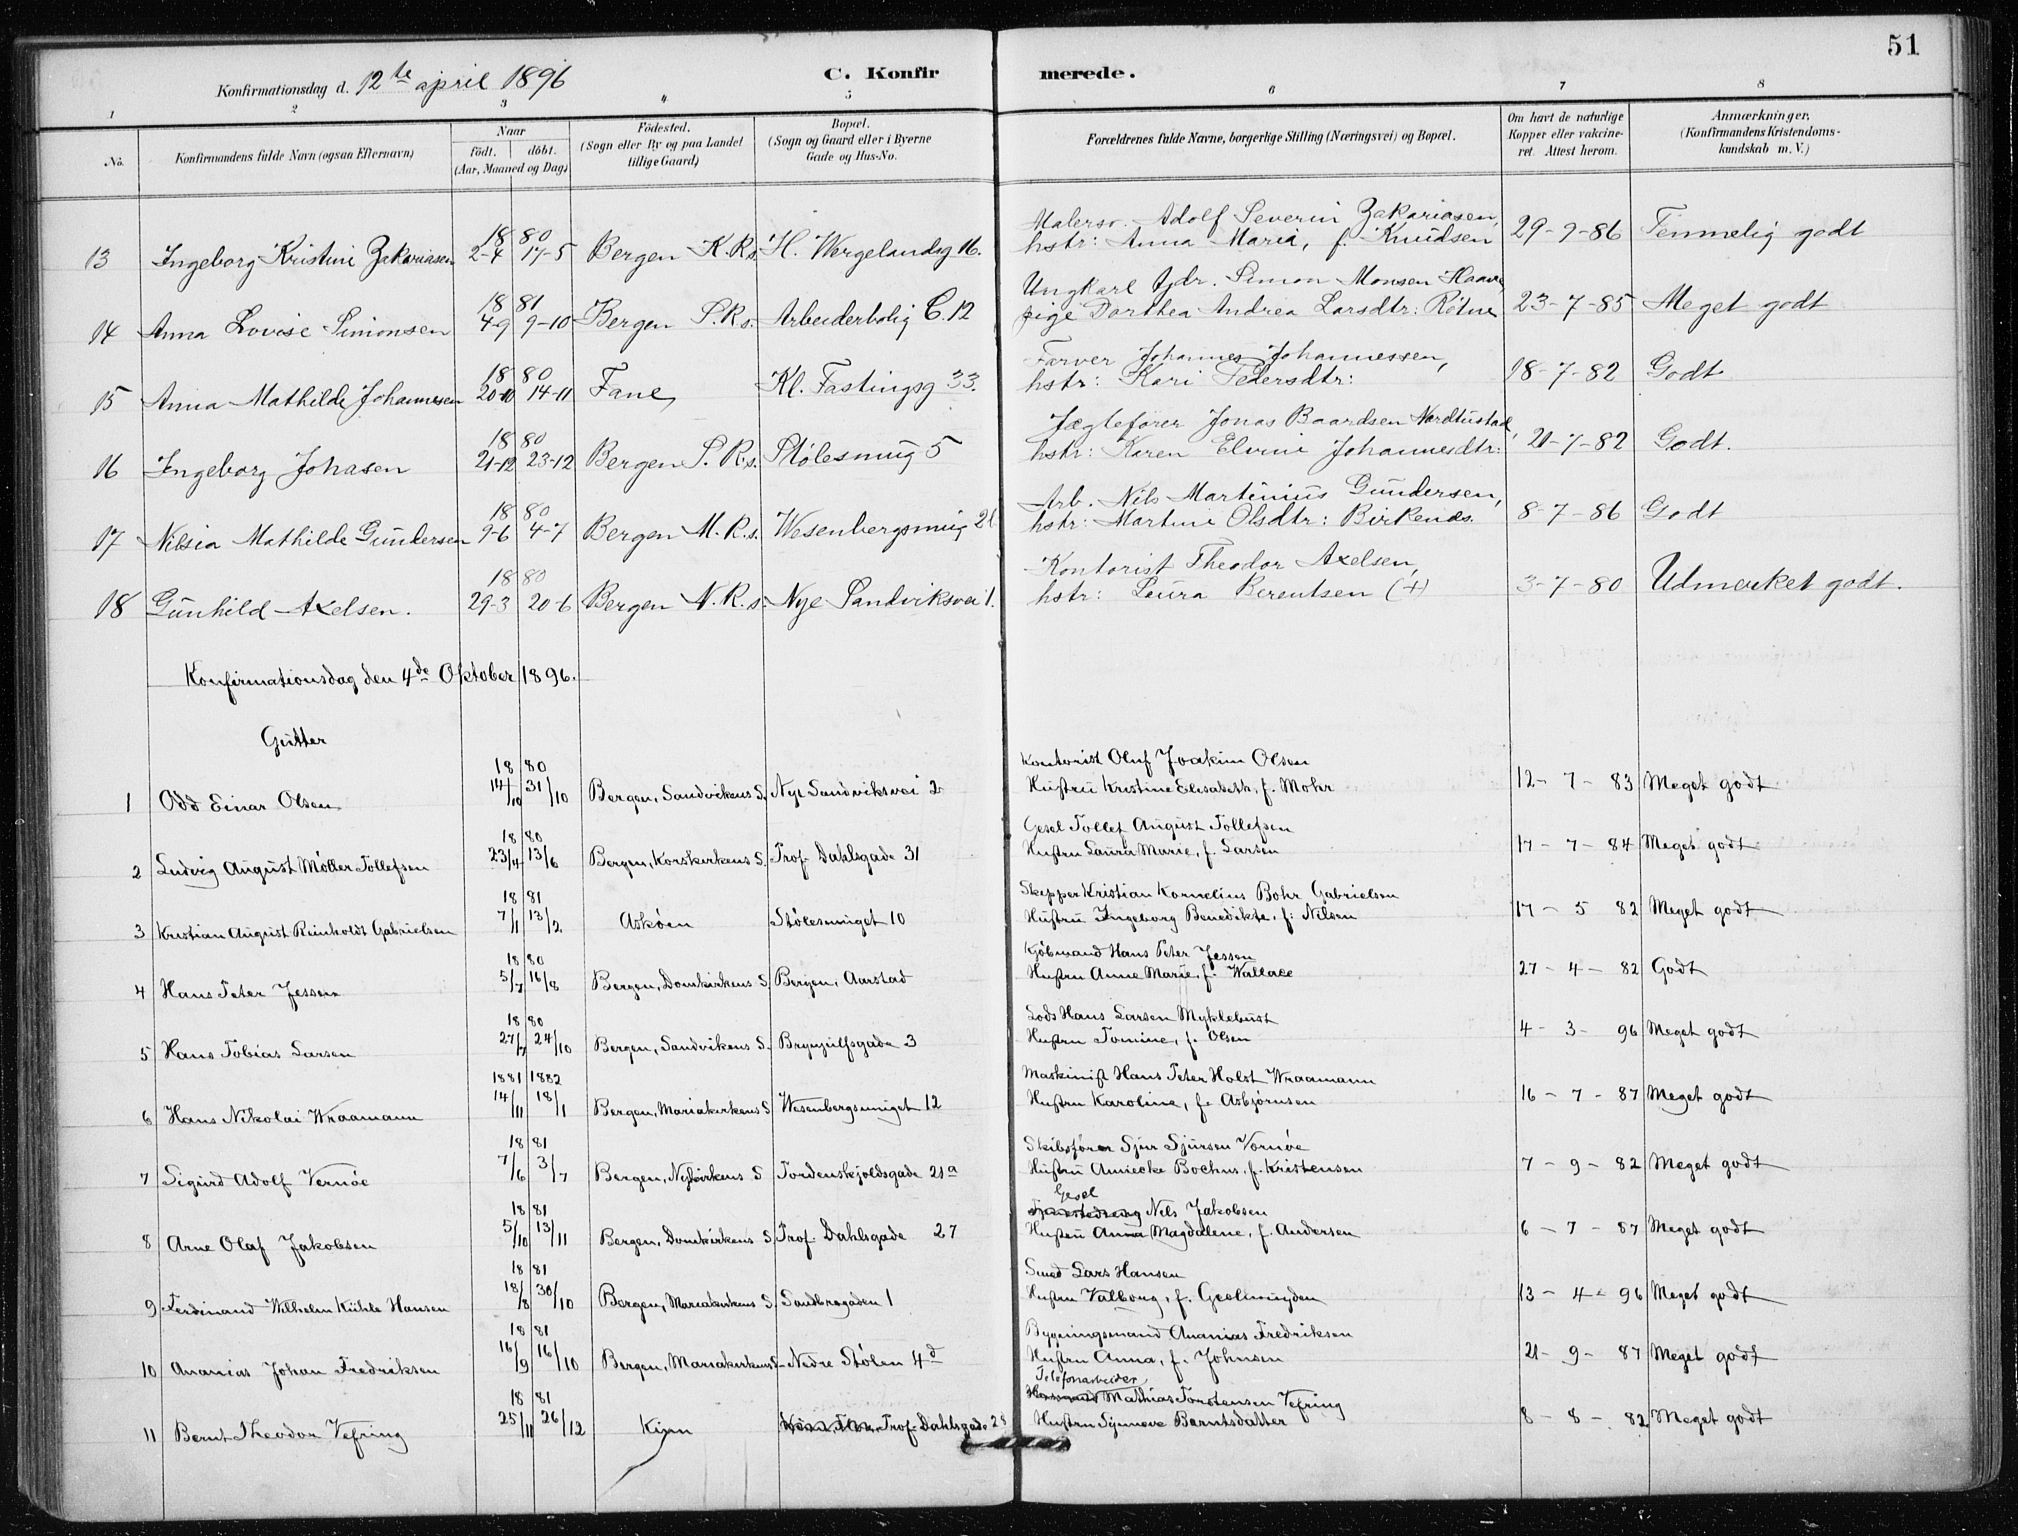 51
Konfirmationsdag d. 12te april 1896
C. Konfirmerede.
1 2 3 4 5 6 7 8
No.
Konfirmandens fulde Navn (ogsaa Efternavn)
Naar
födt. döbt.
(Aar, Maaned og Dag)
Födested.
(Sogn eller By og paa Landet
tillige Gaard)
Bopæl.
(Sogn og Gaard eller i Byerne
Gade og Hus-No.
Forældrenes fulde Navne, borgerlige Stilling (Næringsvei) og Bopæl.
Om havt de naturlige
Kopper eller vakcine-
ret. Attest herom.
Anmærkninger.
(Konfirmandens Kristendoms-
kundskab m. V.)
18 80 Malersv. Adolf Severin Zakariasen,
13 Ingeborg Kristine Zakariasen 2-4 17-5 Bergen K.R.s. H. Wergelandsg 16. hstr: Anna Maria, f. Knudsen 29-9-86 Temmelig godt
18 81 Ungkarl Gdr. Simon Monsen Haave
14 Anna Lovise Simonsen 4-9 9-10 Bergen S.R.s. Arbeiderbolig C. 12 pige Dorthea Andrea Larsdtr: Rötne 23-7-85 Meget godt
18 80 Farver Johannes Johannessen,
15 Anna Mathilde Johannesen 20-10 14-11 Fane, Kl. Fastingsg 33. hstr: Kari Pedersdtr: 18-7-82 Godt
18 80 Jægtefører Jonas Baardsen Nordtustad,
16 Ingeborg Johasen 21-12 23-12 Bergen S.R.s. Stølesmug 5 hstr: Karen Elvine Johannesdtr: 21-7-82 Godt.
18 80 Arb. Nils Martinius Gundersen,
17 Nilsia Mathilde Gundersen 9-6 4-7 Bergen M.R.s. Wesenbergsmug 21 hstr: Martine Olsdtr: Birkenæs. 8-7-86 Godt
18 80 Kontorist Theodor Axelsen,
18 Gunhild Axelsen. 29-3 20-6 Bergen N.R.s. Nye Sandviksvei 1. hstr: Laura Berentsen (+) 3-7-80 Udmerket godt.
Konfirmationsdag den 4de Oktober 1896.
Gutter
18 80 Kontorist Oluf Joakim Olsen
1 Odd Einar Olsen 14/10 31/10 Bergen, Sandvikens S. Nye Sandviksvei 2 Hustru Kristine Elisabeth, f. Mohr 12 - 7 - 83 Meget godt
18 80 Gesel Tollef August Tollefsen
2 Ludvig August Möller Tollefsen 23/4 13/6 Bergen, Korskirkens S. Prof. Dahlsgade 31 Hustru Laura Marie, f. Larsen 17 - 7 - 84 Meget godt
18 81 Skipper Kristian Kornelius Bohr Gabrielsen
3 Kristian August Reinholdt Gabrielsen 7/1 13/2 Asköen Stölesmuget 10 Hustru Ingeborg Benedikte, f: Nilsen 17 - 5 82 Meget godt
18 80 Köbmand Hans Peter Jessen
4 Hans Peter Jessen 5/7 16/8 Bergen, Domkirkens S. Bergen, Aarstad Hustru Anne Marie, f. Wallace 27 - 4 - 82 Godt
18 80 Lods Hans Larsen Myklebust
5 Hans Tobias Larsen 27/7 24/10 Bergen, Sandvikens S. Brynjulfsgade 3 Hustru Tomine, f. Olsen 4 - 3 - 96 Meget godt
1881 1882 Maskinist Hans Peter Holst Wraamann
6 Hans Nikolai Wraamann 14/11 18/1 Bergen, Mariakirkens S Wesenbergsmuget 12 Hustru Karoline, f. Asbjörnsen 16 - 7 - 87 Meget godt
18 81 Skibsförer Sjur Sjursen Vernöe
7 Sigurd Adolf Vernöe 7/6 3/7 Bergen, Nykirkens S Tordenskjoldsgade 21a Hustru Amiecke Bochus, f. Kristensen 7 - 9 - 82 Meget godt
18 81 Gesel Nils Jakobsen
8 Arne Olaf Jakobsen 5/10 13/11 Bergen, Domkirkens S. Prof. Dahlsgade 27 Hustru Anna Magdalene, f. Andersen 6 - 7 - 87 Meget godt
18 81 Smed Lars Hansen
9 Ferdinand Wilhelm Kühle Hansen 18/8 30/10 Bergen, Mariakirkens S. Sandbrogaden 1 Hustru Valborg, f. Geelmuyden 13 - 4 - 96 Meget godt
18 81 Bygningsmand Ananias Fredriksen
10 Ananias Johan Fredriksen 16/9 16/10 Bergen, Mariakirkens S. Nedre Stölen 4d Hustru Anna, f. Johnsen 21 - 9 - 87 Meget godt
Telefonarbeider
18 81 Mathias Torstensen Vefring
11 Bernt Theodor Vefring 25/11 26/12 Kinn Prof. Dahlsgade 28 Hustru Synneve Berntsdatter 8 - 8 - 82 Meget godt